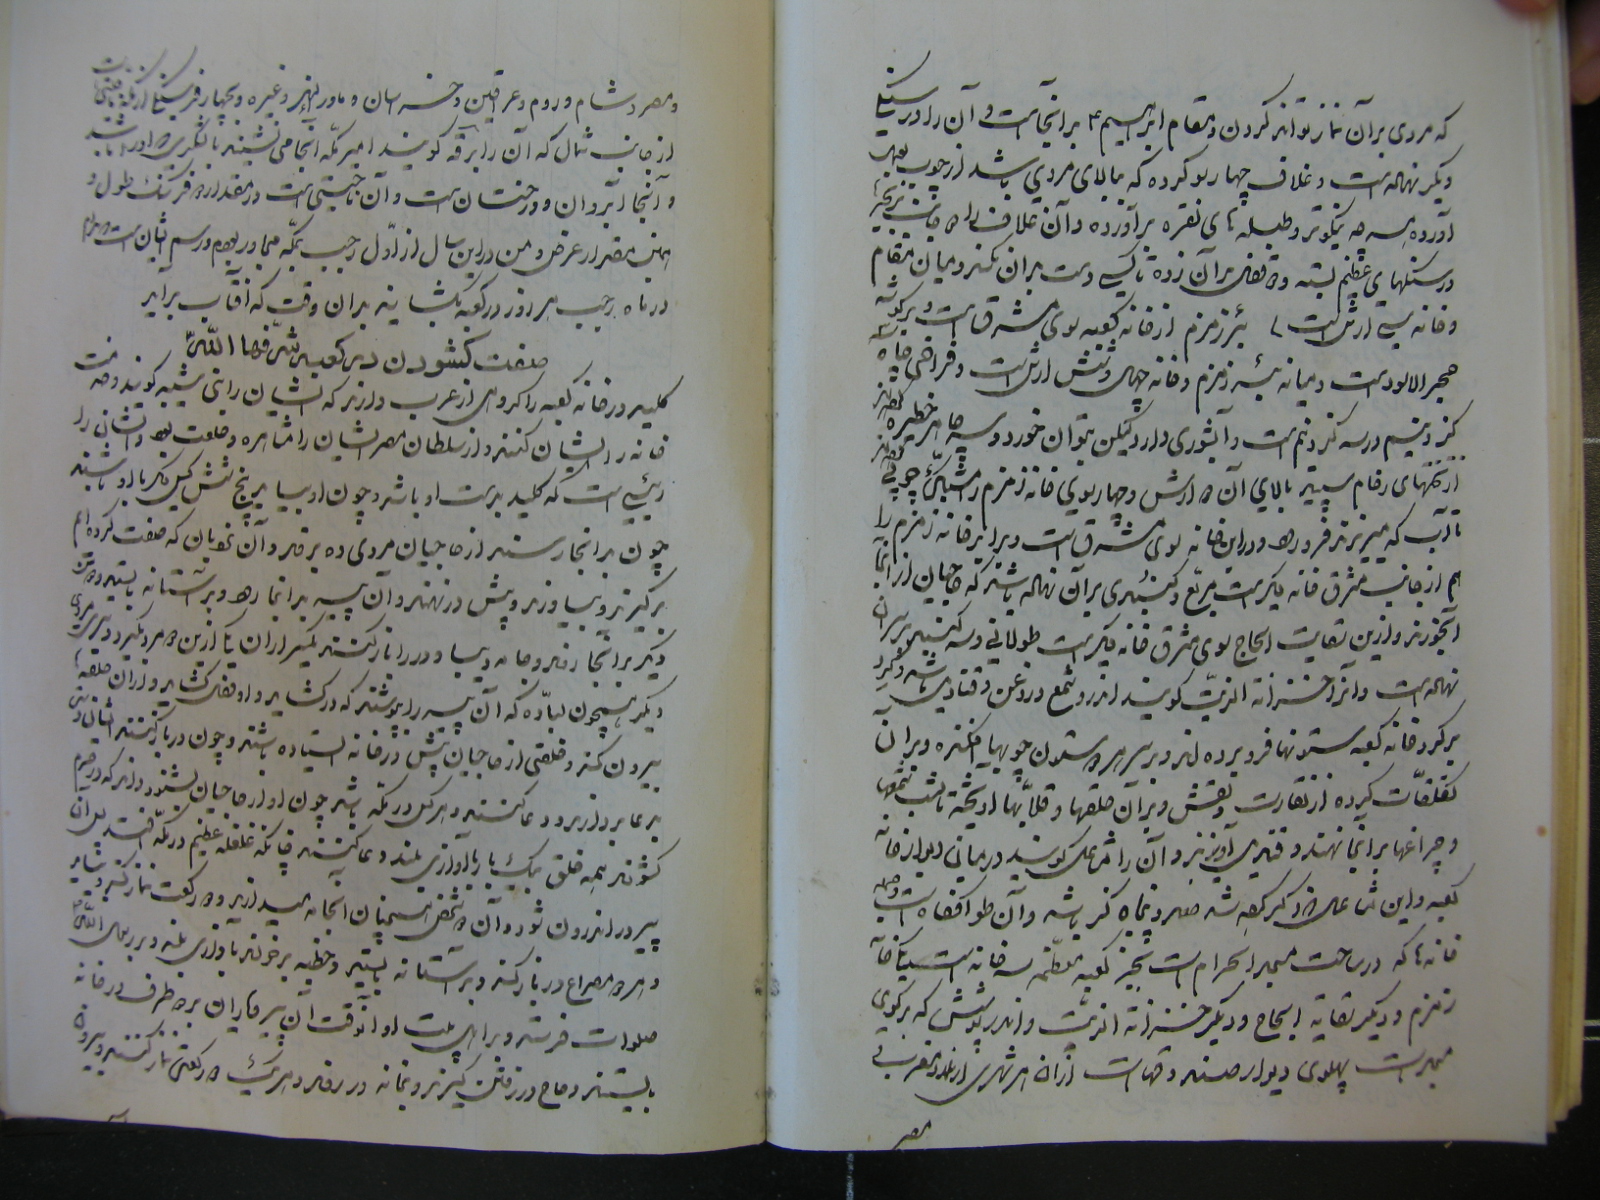 که مردی بر آن نماز تواند کردن و مقام ابراهیم ع برابر آنجاست و آن را در سنگی
دیگر نهاده است و غلاف چهارسو کرده که ببالای مردی باشد از چوب بعمل
آورده هر چه نیکوتر و طبلهای نقره برآورده و آن غلاف را دو جانب بزنجیرها
در سنگهای عظیم بسته و دو قفل بر آن زده تا کسی دست بدان نکند و میان مقام
و خانه سی ارش است بئر زمزم از خانه کعبه سوی مشرق است و بر گوشه
حجر الاسود است و میانه بئر زمزم و خانه چهل و شش ارش است و فراخی چاه
گز و نیم در سه گز و نیم است و آبش شوری دارد لیکن بتوان خورد و سر چاه را حظیره
از تختهای رخام سپید بالای آن دو ارش و چهار سوی خانه زمزم
تا آب که میریزند فرو رود و در این خانه سوی مشرق است و برابر خانه زمزم را
هم از جانب مشرق خانه دیگر است مربع و گنبدی بر آن نهاده
آبخورند و ازین سقایت الحاج سوی مشرق خانه دیگر است طولانی و سه گنبد بر سر آن
نهاده است و آنرا خزانة الزیت گویند اندرو شمع و روغن و قنادیل باشد و گرد
بر گرد خانه کعبه ستونها فرو برده اند و بر سر هر دو ستون چوبها افکنده و بر آن
تکلفات کرده از نقارت و نقش و بر آن حلقها و قلابها آویخته تا بشب شمعها
و چراغها بر آنجا نهند و قندیل آویزند و آن را مشاعل گویند در میانی دیوار خانه
کعبه و این مشاعل که ذکر کرده شد صد و پنجاه گز باشد و آن طوافگاه است و جمله
خانه‌ها که در ساحت مسجد الحرام است بجز کعبه معظمه سه خانه است یکی خانه
زمزم و دیگر سقایه الحاج و دیگر خزانة الزیت و اندر پوشش که بر گرد
مسجد است پهلوی دیوار صندوقهاست از آن هر شهری از بلاد مغرب و
مصر
و مصر و شام و روم و عراقین و خراسان و ماوراءالنهر و غیره و بچهار فرسنگی از مکه
از جانب شمال که آن را برقه گویند امیر مکه آنجا می نشیند با لشکری که او را باشد
و آنجا آب روان و درختان است و آن ناحیتی است در مقدار دو فرسنگ طول و
همین مقدار عرض و من در این سال از اول رجب بمکه مجاور بودم و رسم ایشان است
در ماه رجب هر روز در کعبه بگشایند بدان وقت که آفتاب برآید
صفت کشودن در کعبه شرفها الله
کلید در خانه کعبه را گروهی از عرب دارند که ایشان را بنی شیبه گویند و خدمت
خانه را ایشان کنند و از سلطان مصر ایشان را مشاهره و خلعت بود و ایشان را
رئیسی است که کلید بدست او باشد و چون او بیاید پنج شش کس دیگر با او باشند
چون بدانجا رسند از حاجیان مردی ده برفند و آن نردبان که صفت کرده ایم
برگیرند و بیاورند و پیش در نهند و آن پیر بر آنجا رود و بر آستانه بایستد و دو تن
دیگر بر آنجا روند و جامه دیبا و در را باز کنند یکسر از آن یکی از این دو مرد بگیرد و سری مردی
دیگر همچون لباده که آن پیر را بپوشند که در گشاید و او قفل بگشاید و از آن حلقها
بیرون کند و خلقی از حاجیان پیش در خانه ایستاده باشند و چون در باز کنند ایشان دست
بدعا بردارند و دعا کنند و هر کس در مکه باشد چون آواز حاجیان بشنود داند که در حرم
گشودند همه خلق بیکبار بآوازی بلند دعا کنند چنانکه غلغله عظیم در مکه افتد پس آن
پیر در اندرون شود و آن دو شخص همچنان آن جامه میدارند و دو رکعت نماز کند و بیاید
و هر دو مصراع در باز کند و بر آستانه بایستد و خطبه برخواند بآوازی بلند و بر رسول الله ص
صلوات فرستد و بر اهل بیت او آنوقت آن پیر و یاران بر دو طرف در خانه
بایستند و حاج در رفتن گیرند و بخانه در روند و هر یک دو رکعت نماز کنند و بیرون